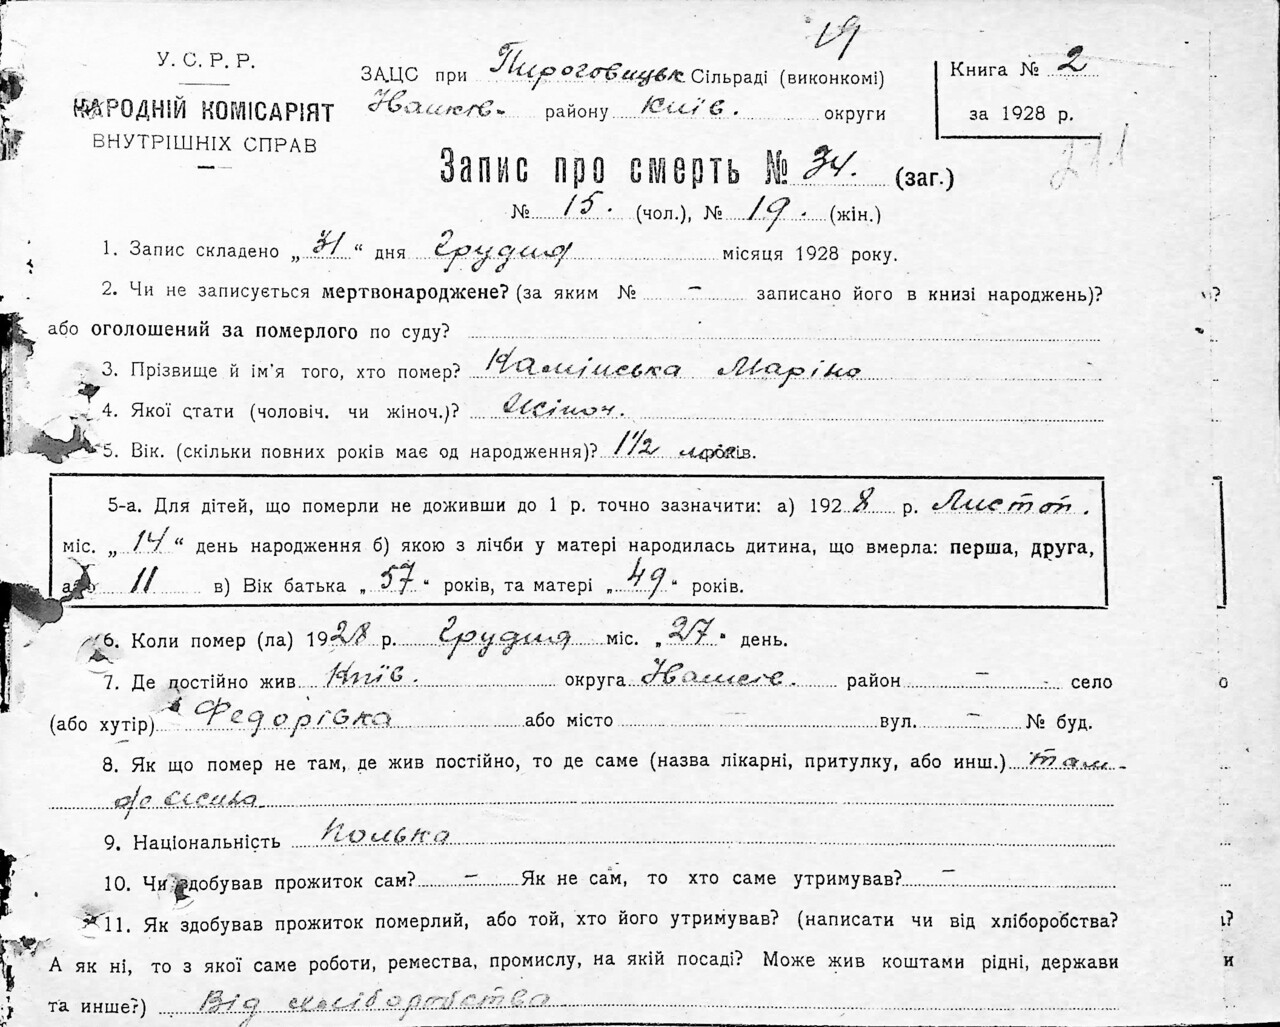 19
У. С. Р. Р.
НАРОДНІЙ КОМІСАРІЯТ
ВНУТРІШНІХ СПРАВ
ЗАЦС при Пироговицьк Сільраді (виконкомі)
району Київ. округи
Книга № 2
за 1928 р.
271
Запис про смерть № 34. (заг.)
№ 15. (чол.), № 19. (жін.)
1. Запис складено „ 31 “ дня Грудня місяця 1928 року.
2. Чи не записується мертвонароджене? (за яким № – записано його в книзі народжень)?
або оголошений за померлого по суду?
3. Прізвище й ім'я того, хто помер? Камінська Маріна
4. Якої стати (чоловіч. чи жіноч.)? Жіноч.
5. Вік. (скільки повних років має од народження)? 1½ років.
5-а. Для дітей, що померли не доживши до 1 р. точно зазначити: а) 1928 р. Листоп.
міс. „ 14 “ день народження б) якою з лічби у матері народилась дитина, що вмерла: перша, друга,
або 11 в) Вік батька „ 57 “ років, та матері „ 49 “ років.
6. Коли помер (ла) 1928 р. Грудня міс. „ 27 “ день.
7. Де постійно жив Київ. округа район – село
(або хутір) Федорівка або місто вул. – № буд.
8. Як що помер не там, де жив постійно, то де саме (назва лікарні, притулку, або инш.) там-
же жила
9. Національність Полька
10. Чи здобував прожиток сам? – Як не сам, то хто саме утримував? –
11. Як здобував прожиток померлий, або той, хто його утримував? (написати чи від хліборобства?
А як ні, то з якої саме роботи, ремества, промислу, на якій посаді? Може жив коштами рідні, держави
та инше?) Від хліборобства